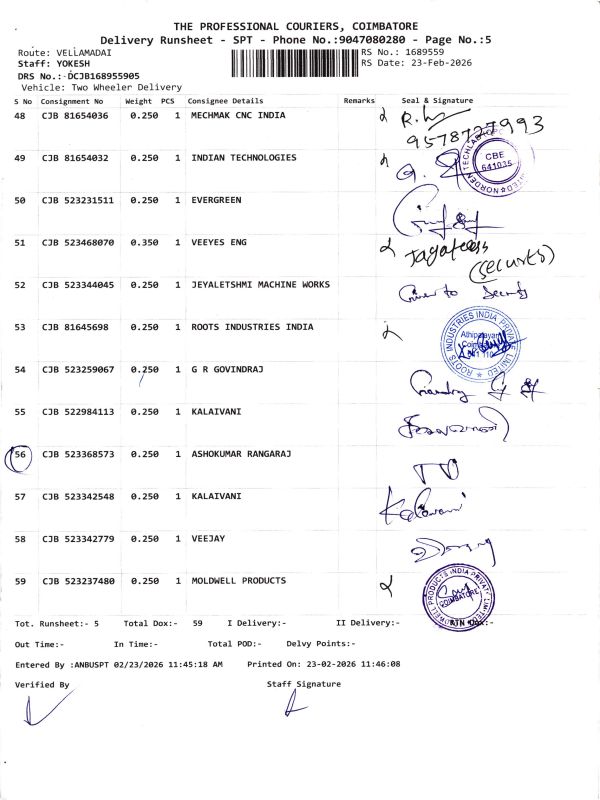 THE PROFESSIONAL COURIERS, COIMBATORE
Delivery Runsheet - SPT - Phone No.:9047080280 - Page No.:5
Route: VELLAMADAI RS No.: 1689559
Staff: YOKESH RS Date: 23-Feb-2026
DRS No.:-DCJB168955905
Vehicle: Two Wheeler Delivery
S No Consignment No Weight PCS Consignee Details Remarks Seal & Signature
48 CJB 81654036 0.250 1 MECHMAK CNC INDIA
9578727993
49 CJB 81654032 0.250 1 INDIAN TECHNOLOGIES
CBE
641035
50 CJB 523231511 0.250 1 EVERGREEN
51 CJB 523468070 0.350 1 VEEYES ENG
(Security)
52 CJB 523344045 0.250 1 JEYALETSHMI MACHINE WORKS Given to Security
53 CJB 81645698 0.250 1 ROOTS INDUSTRIES INDIA
ROOTS INDUSTRIES INDIA PRIVATE LIMITED
54 CJB 523259067 0.250 1 G R GOVINDRAJ
55 CJB 522984113 0.250 1 KALAIVANI
56 CJB 523368573 0.250 1 ASHOKUMAR RANGARAJ
57 CJB 523342548 0.250 1 KALAIVANI Kalaivani
58 CJB 523342779 0.250 1 VEEJAY
59 CJB 523237480 0.250 1 MOLDWELL PRODUCTS
MOLDWELL PRODUCTS INDIA PRIVATE LIMITED
COIMBATORE
Tot. Runsheet:- 5 Total Dox:- 59 I Delivery:- II Delivery:- RTN Dox:-
Out Time:- In Time:- Total POD:- Delvy Points:-
Entered By :ANBUSPT 02/23/2026 11:45:18 AM Printed On: 23-02-2026 11:46:08
Verified By Staff Signature